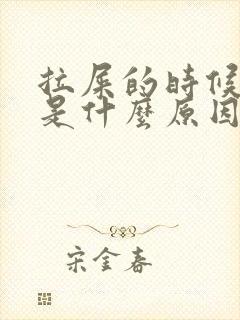 拉屎的時候
是什麼原因
宋金春